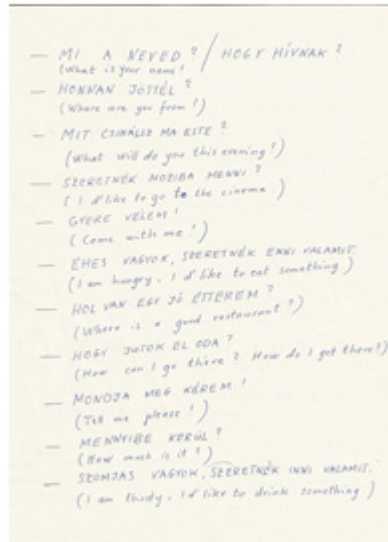 — MI A NEVED ? / HOGY HÍVNAK ?
(What is your name !
— HONNAN JÖTTÉL ?
(Where are you from !)
— MIT CSINÁLSZ MA ESTE ?
(What will do you this evening ?)
— SZERETNÉK MOZIBA MENNI ?
( I d'like to go to the cinema .)
— GYERE VELEM !
( Come with me ! )
— ÉHES VAGYOK, SZERETNÉK ENNI VALAMIT.
(I am hungry . I d'like to eat something )
— HOL VAN EGY JÓ ÉTTEREM ?
(Where is a good restaurant ?)
— HOGY JUTOK EL ODA ?
(How can I go there ? How do I get there?)
— MONDJA MEG KÉREM !
(Tell me please ! )
— MENNYIBE KERÜL ?
(How much is it ? )
— SZOMJAS VAGYOK, SZERETNÉK INNI VALAMIT.
(I am thirsty, I d'like to drink something )